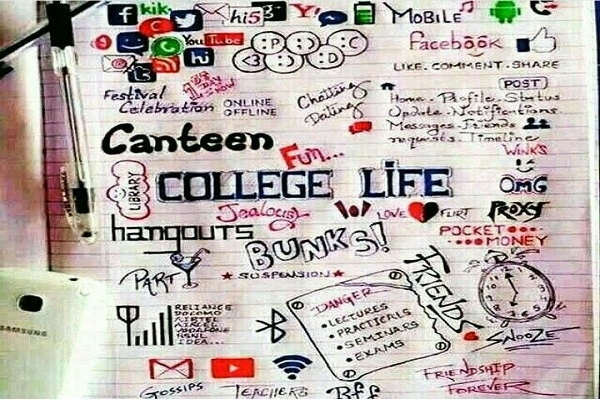 kik
hi5
Y!
MOBILE
You Tube
hi
:P :D :C
<3 :) :(
Facebook
LIKE. COMMENT. SHARE
POST
Festival
Celebration
ONLINE
OFFLINE
Chatting
Dating
Home. Profile. Status
Update. Notifications
Messages. Friends
requests. Timeline
WINKS
Canteen
Fun...
LIBRARY
COLLEGE LIFE
OMG
Jealousy
LOVE FLIRT
PROXY
hangouts
BUNKS!
POCKET
MONEY
PARTY
SUSPENSION
FRIENDS
DANGER
LECTURES
PRACTICALS
SEMINARS
EXAMS
RELIANCE
DOCOMO
AIRTEL
AIRCEL
VODAFONE
BSNL
IDEA...
SNOOZE
SAMSUNG
GOSSIPS
TEACHERS
Bff
FRIENDSHIP
FOREVER